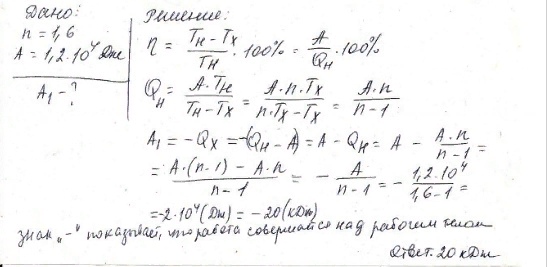 Дано:
n = 1,6
A = 1,2·10⁴ Дж
A₁ - ?
Решение:
η = (Tн - Tх)/Tн · 100% = A/Qн · 100%
Qн = A·Tн/(Tн - Tх) = A·n·Tх/(n·Tх - Tх) = A·n/(n - 1)
A₁ = -Qх = -(Qн - A) = A - Qн = A - A·n/(n - 1) =
= (A·(n - 1) - A·n)/(n - 1) = - A/(n - 1) = - 1,2·10⁴/(1,6 - 1) =
= -2·10⁴(Дж) = -20(кДж)
знак „-" показывает, что работа совершается над рабочим телом
Ответ: 20 кДж